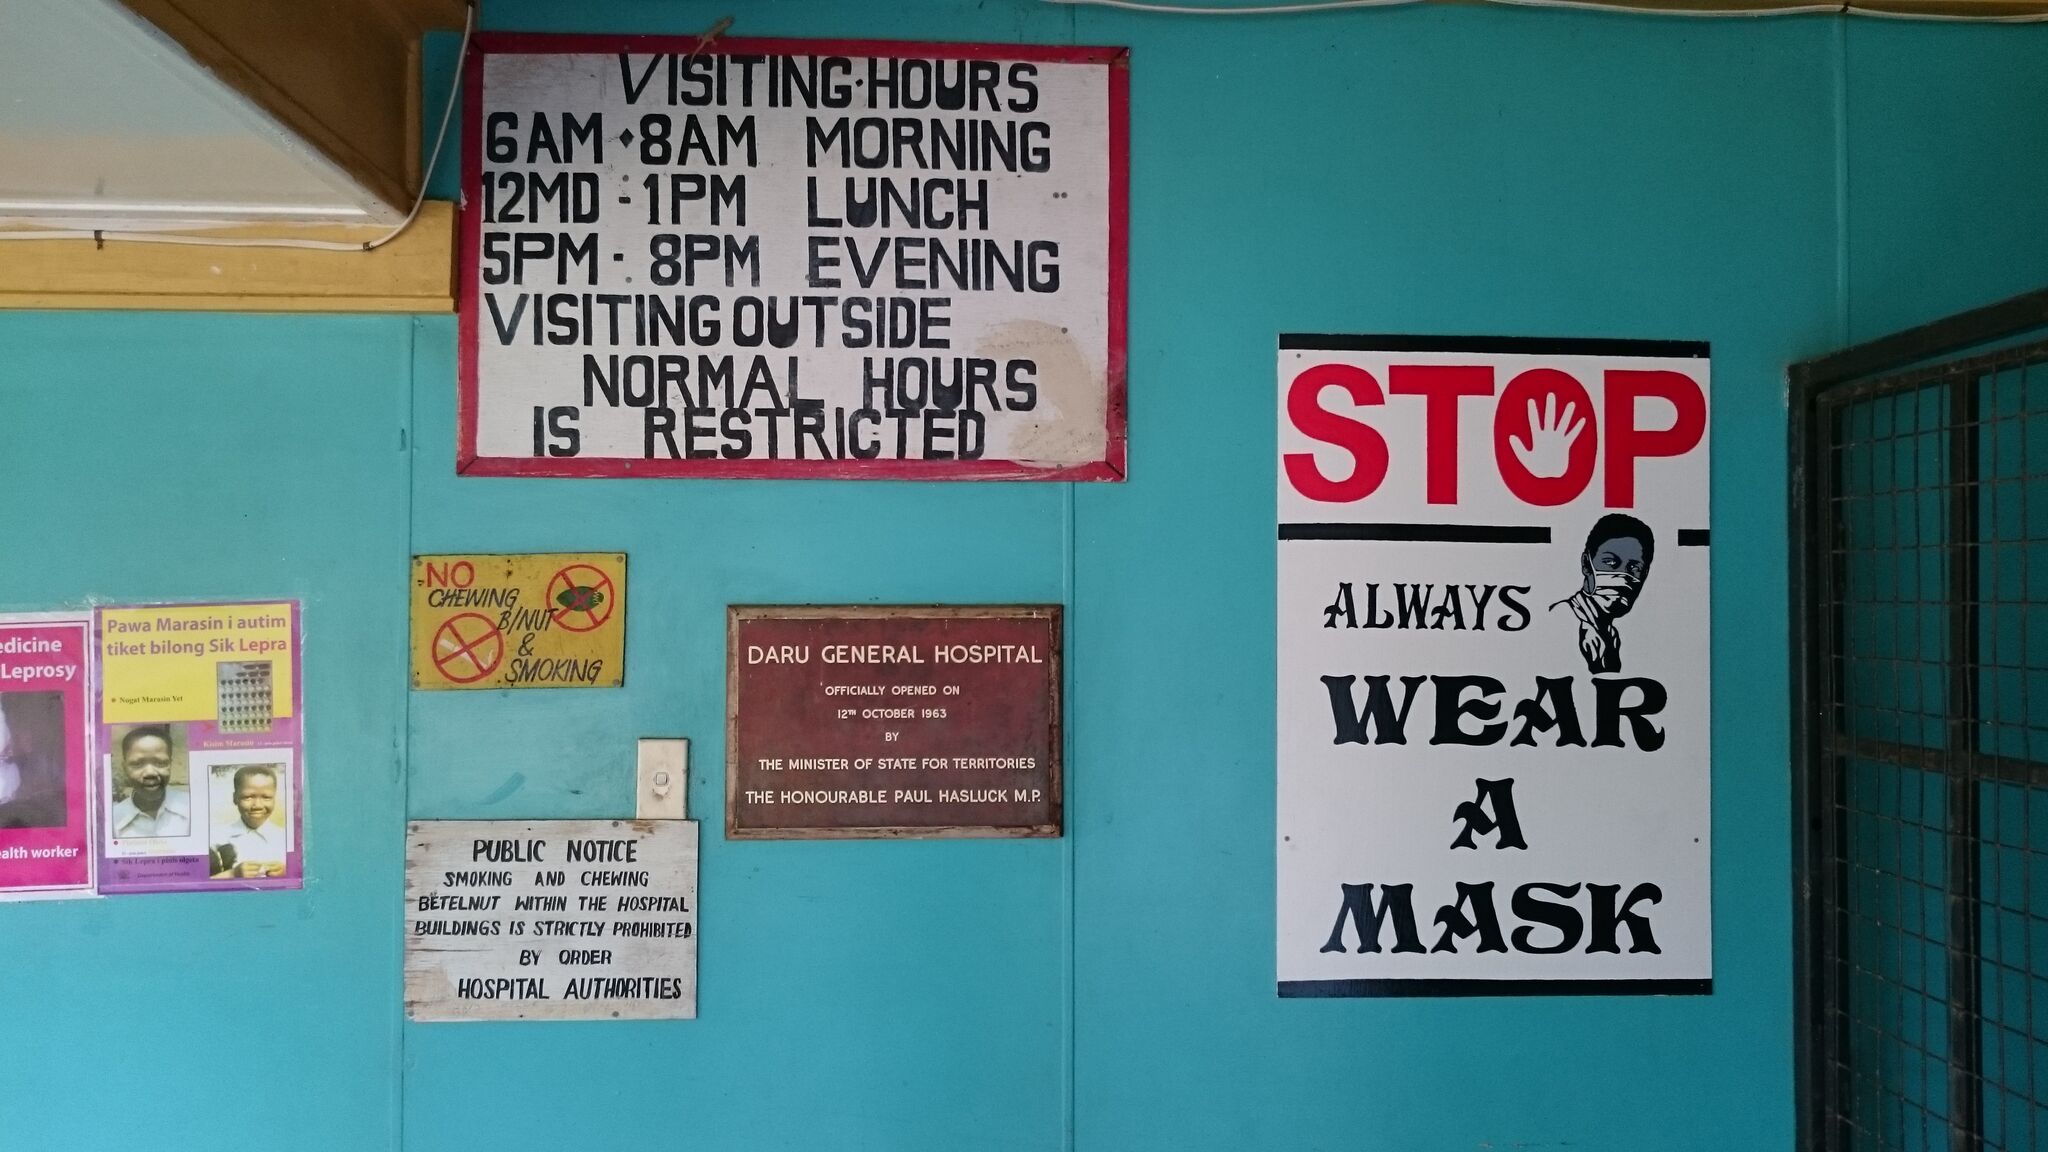 VISITING·HOURS
6AM · 8AM MORNING
12MD - 1PM LUNCH
5PM - 8PM EVENING
VISITING OUTSIDE
NORMAL HOURS
IS RESTRICTED
STOP
ALWAYS
WEAR
A
MASK
NO
CHEWING
B/NUT
&
SMOKING
DARU GENERAL HOSPITAL
OFFICIALLY OPENED ON
12TH OCTOBER 1963
BY
THE MINISTER OF STATE FOR TERRITORIES
THE HONOURABLE PAUL HASLUCK M.P.
PUBLIC NOTICE
SMOKING AND CHEWING
BETELNUT WITHIN THE HOSPITAL
BUILDINGS IS STRICTLY PROHIBITED
BY ORDER
HOSPITAL AUTHORITIES
edicine
Leprosy
ealth worker
Pawa Marasin i autim
tiket bilong Sik Lepra
Nogat Marasin Yet
Kisim Marasin
Sik Lepra i pinis
Department of Health